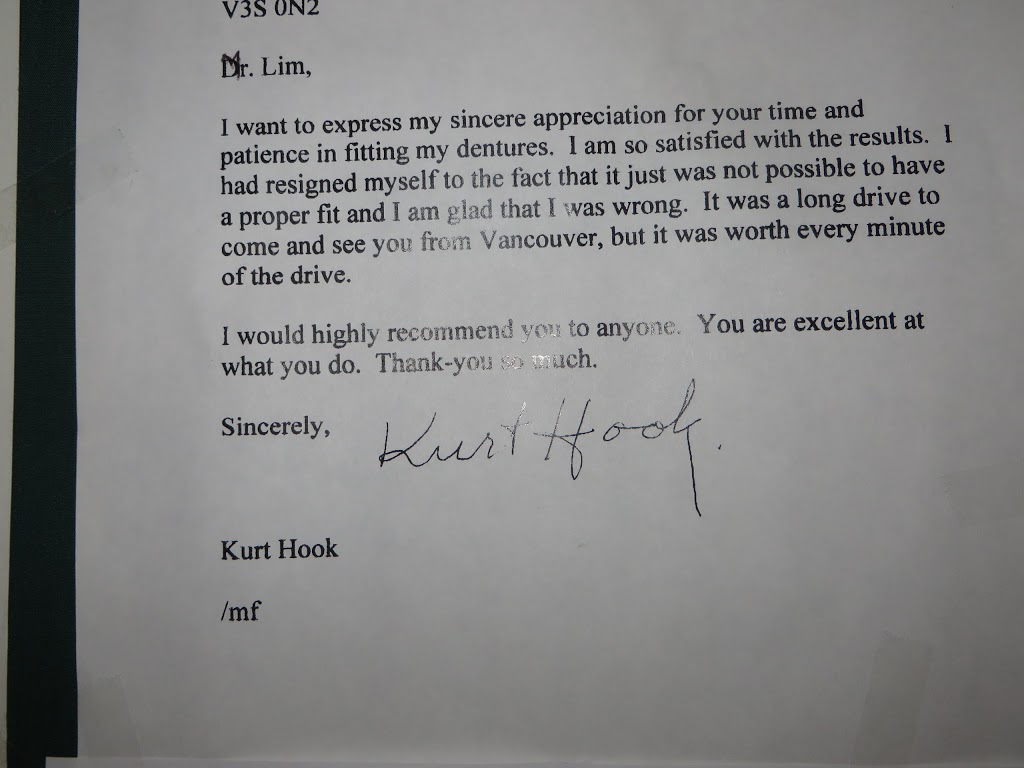 V3S 0N2
Mr. Lim,
I want to express my sincere appreciation for your time and
patience in fitting my dentures. I am so satisfied with the results. I
had resigned myself to the fact that it just was not possible to have
a proper fit and I am glad that I was wrong. It was a long drive to
come and see you from Vancouver, but it was worth every minute
of the drive.
I would highly recommend you to anyone. You are excellent at
what you do. Thank-you so much.
Sincerely,
Kurt Hook.
Kurt Hook
/mf